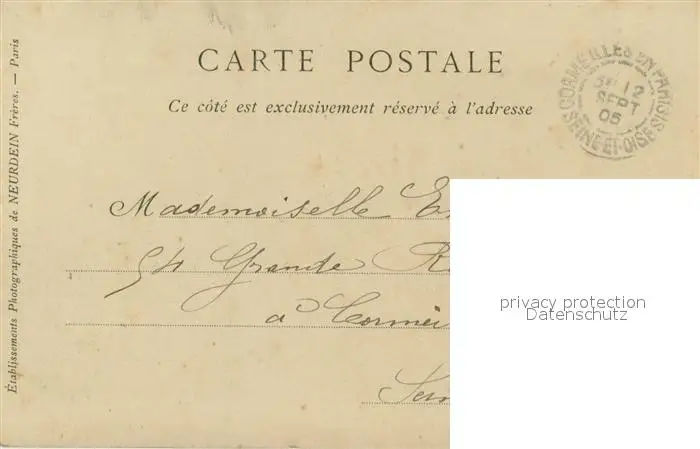 CARTE POSTALE
Ce côté est exclusivement réservé à l'adresse
CORMEILLES EN PARISIS
12
SEPT
05
SEINE-ET-OISE
Mademoiselle
54 Grande
à
privacy protection
Datenschutz
Établissements Photographiques de NEURDEIN Frères. — Paris